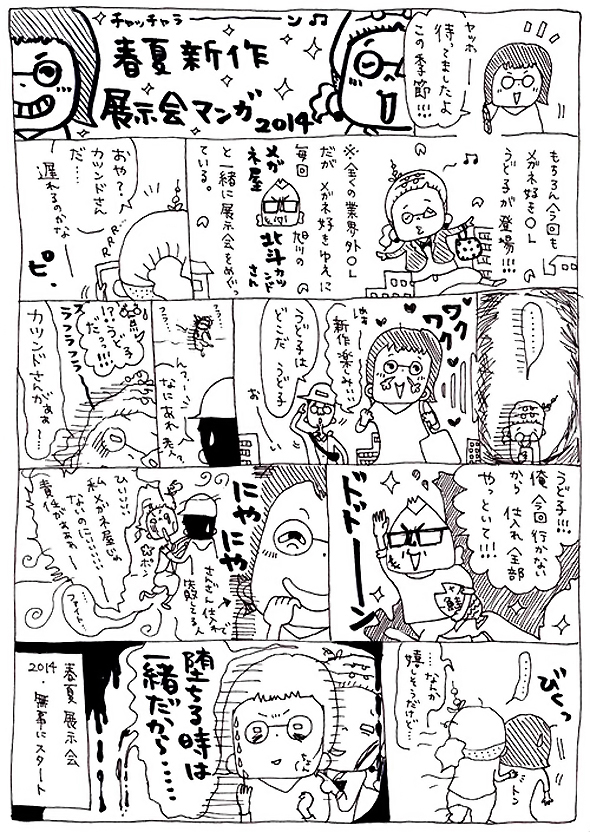 ヤッホー
待ってましたよ
この季節!!!
チャッチャラーン♫
春夏新作
展示会マンガ
2014
もちろん今回も
メガネ好きOL
うど子が登場!!!
※全くの業界外OL
だがメガネ好きゆえに
毎回旭川の
メガネ屋
北斗カツンドさん
と一緒に展示会をめぐっ
ている。
RRR…
おや?
カツンドさん
だ…
遅れるのかな
ピ.
ワクワク
ワク
新作楽しみぃぃ
うど子は
どこだ うど子
お
ん?
なにあれ
フラ…
!?うど子
だっっ!!!
フラフラフラ
カツンドさんがぁぁ〜…
うど子!!!
俺今回行かない
から 仕入れ全部
やっといて!!!
ドドドーン
鮭
にやにや
さんざん仕入れで
失敗してる人
ポ
ひいいい
私メガネ屋じゃ
ないのにいいいい
責任がぁぁぁぁ
ファイト…
びくっ
トン
…なんか
嬉しそうだけど…
堕ちる時は
一緒だから……
春夏展示会
2014
無事にスタート